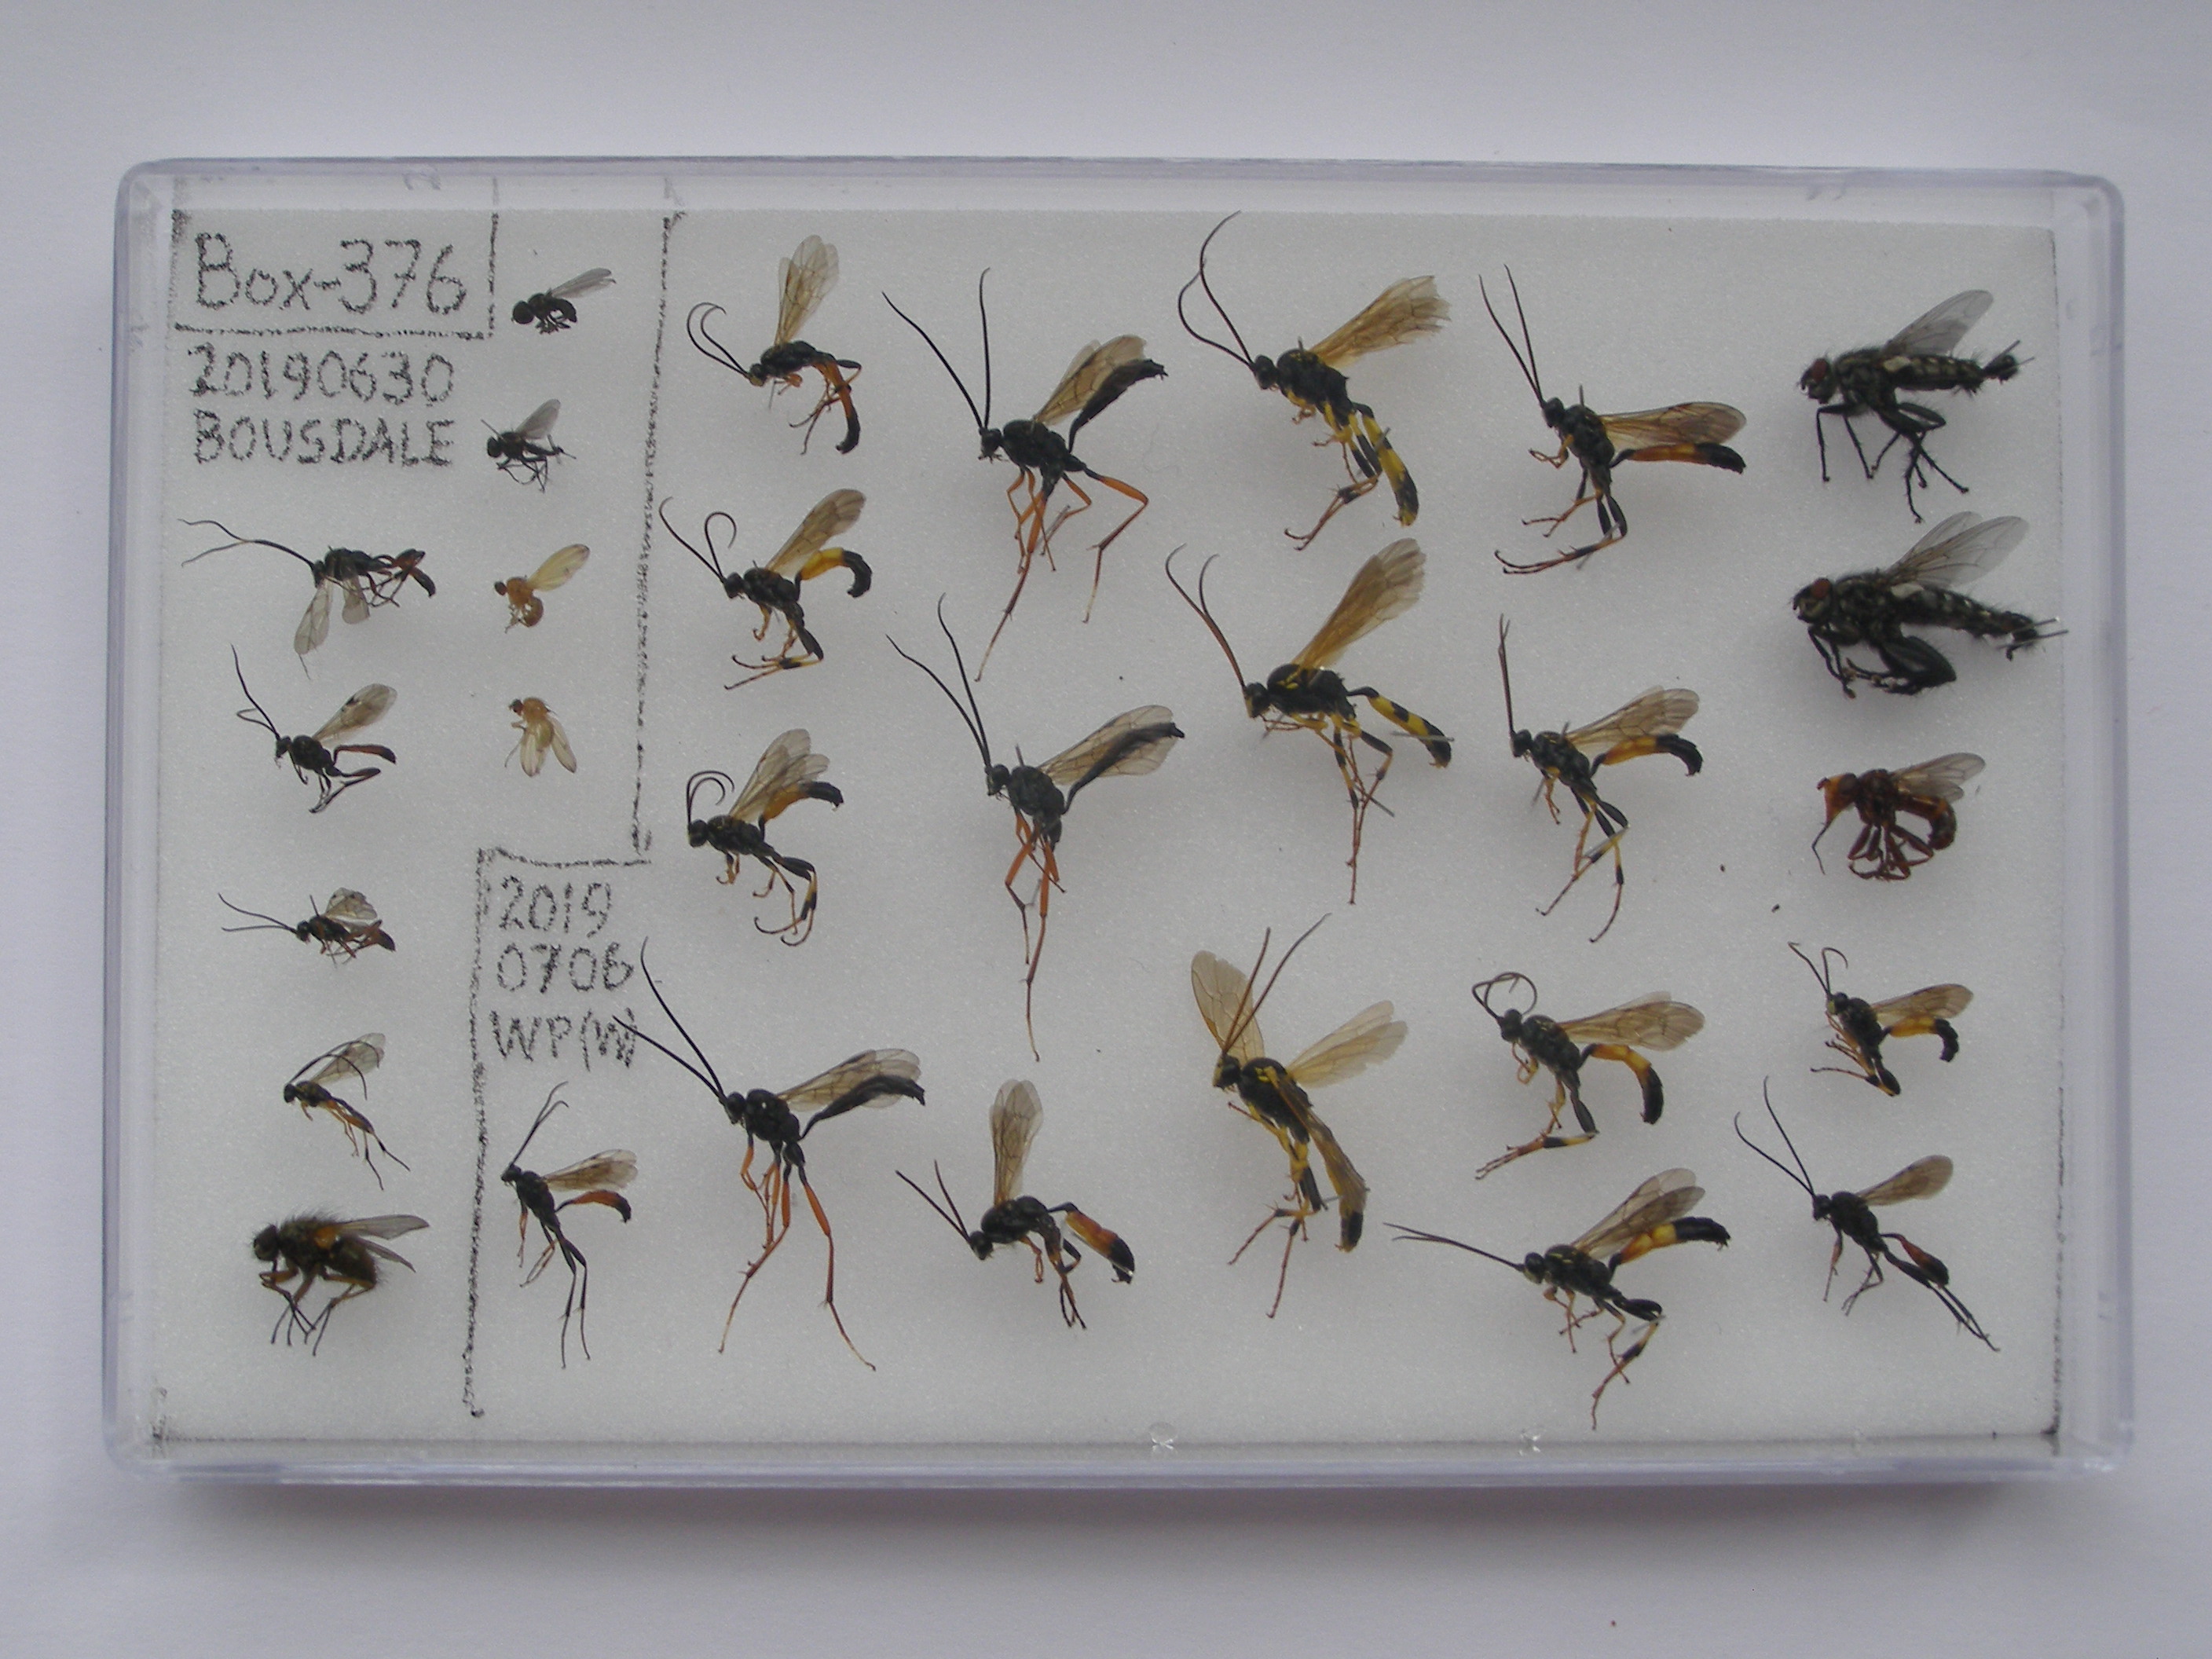 Box-376
20190630
BOUSDALE
2019
0706
WP(W)